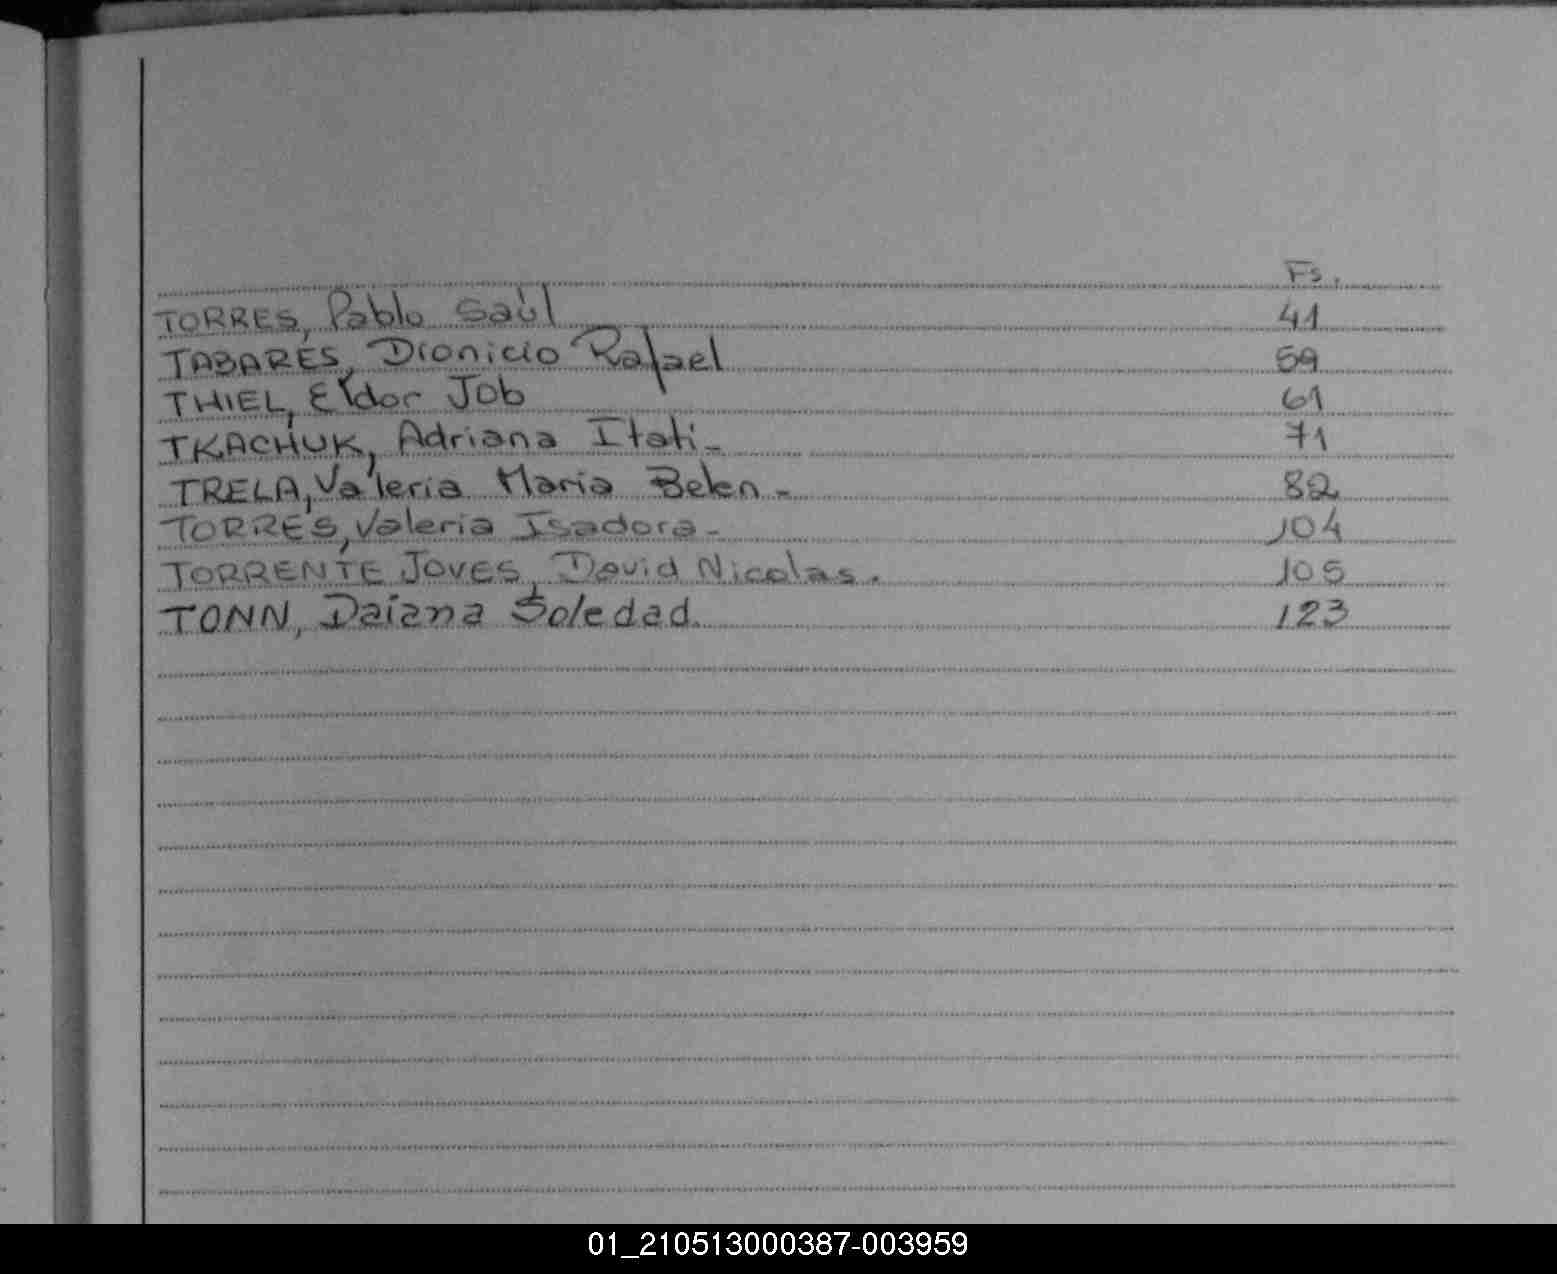 Fs.
TORRES, Pablo Saúl 41
TABARES, Dionicio Rafael 59
THIEL, Eldor Job 61
TKACHUK, Adriana Itati- 71
TRELA, Valeria Maria Belen- 82
TORRES, Valeria Isadora- 104
TORRENTE JOVES, David Nicolas. 105
TONN, Daiana Soledad. 123
01_210513000387-003959